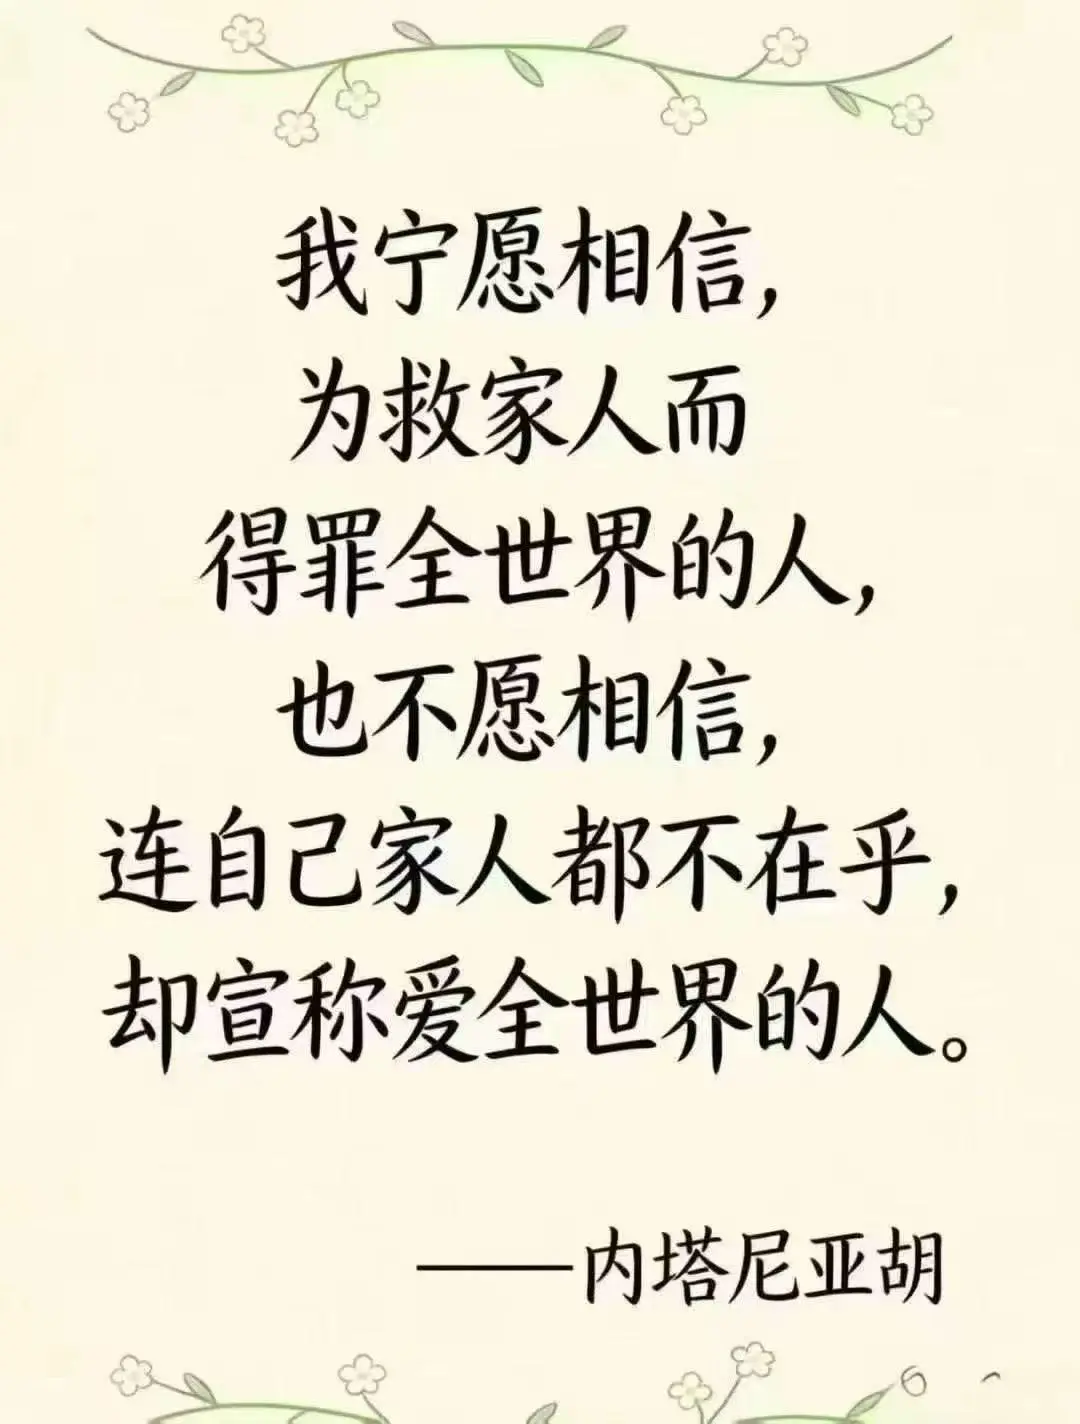 我宁愿相信，
为救家人而
得罪全世界的人，
也不愿相信，
连自己家人都不在乎，
却宣称爱全世界的人。
——内塔尼亚胡